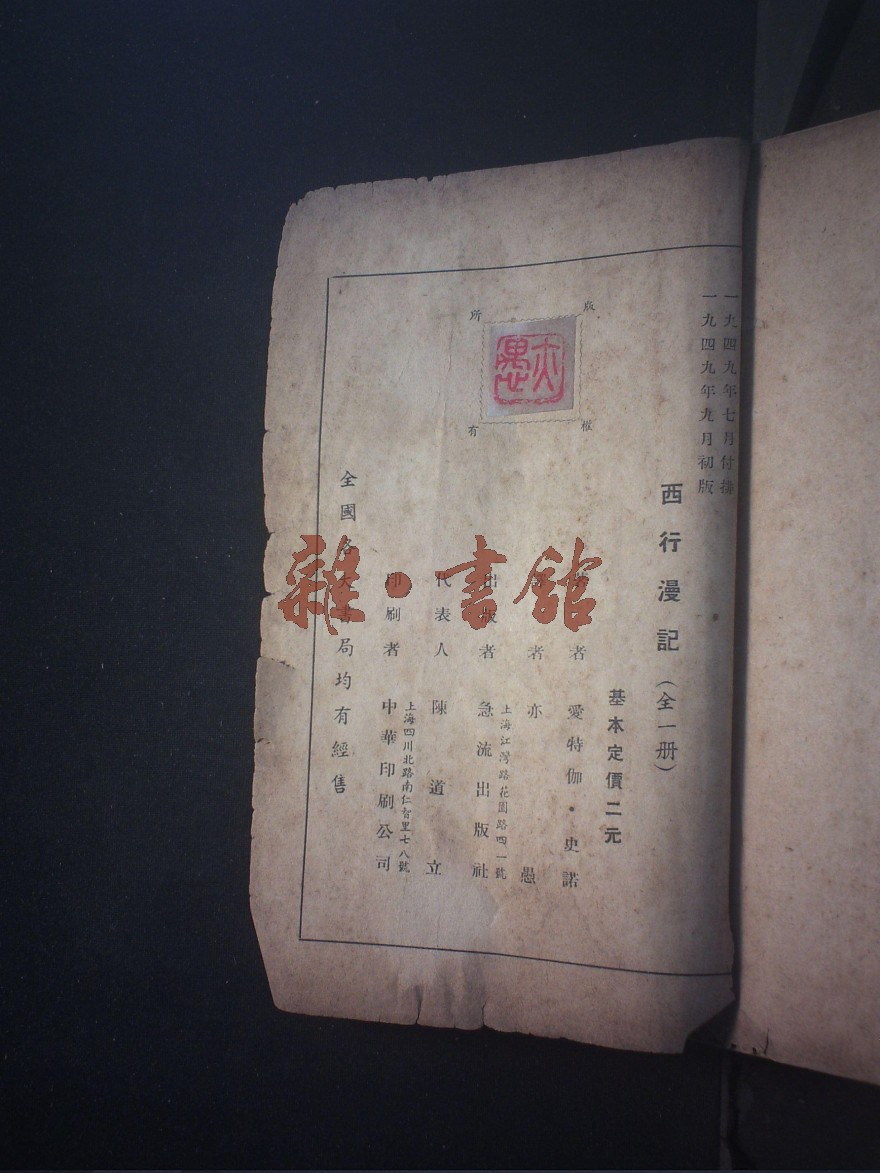 一九四九年七月付排
一九四九年九月初版
西行漫記（全一册）
基本定價二元
著者 愛特伽·史諾
譯者 亦愚
上海江灣路花園路四一號
出版者 急流出版社
代表人 陳道立
上海四川北路南仁智里七八號
印刷者 中華印刷公司
全國各大書局均有經售
版權所有
亦愚
雜·書館